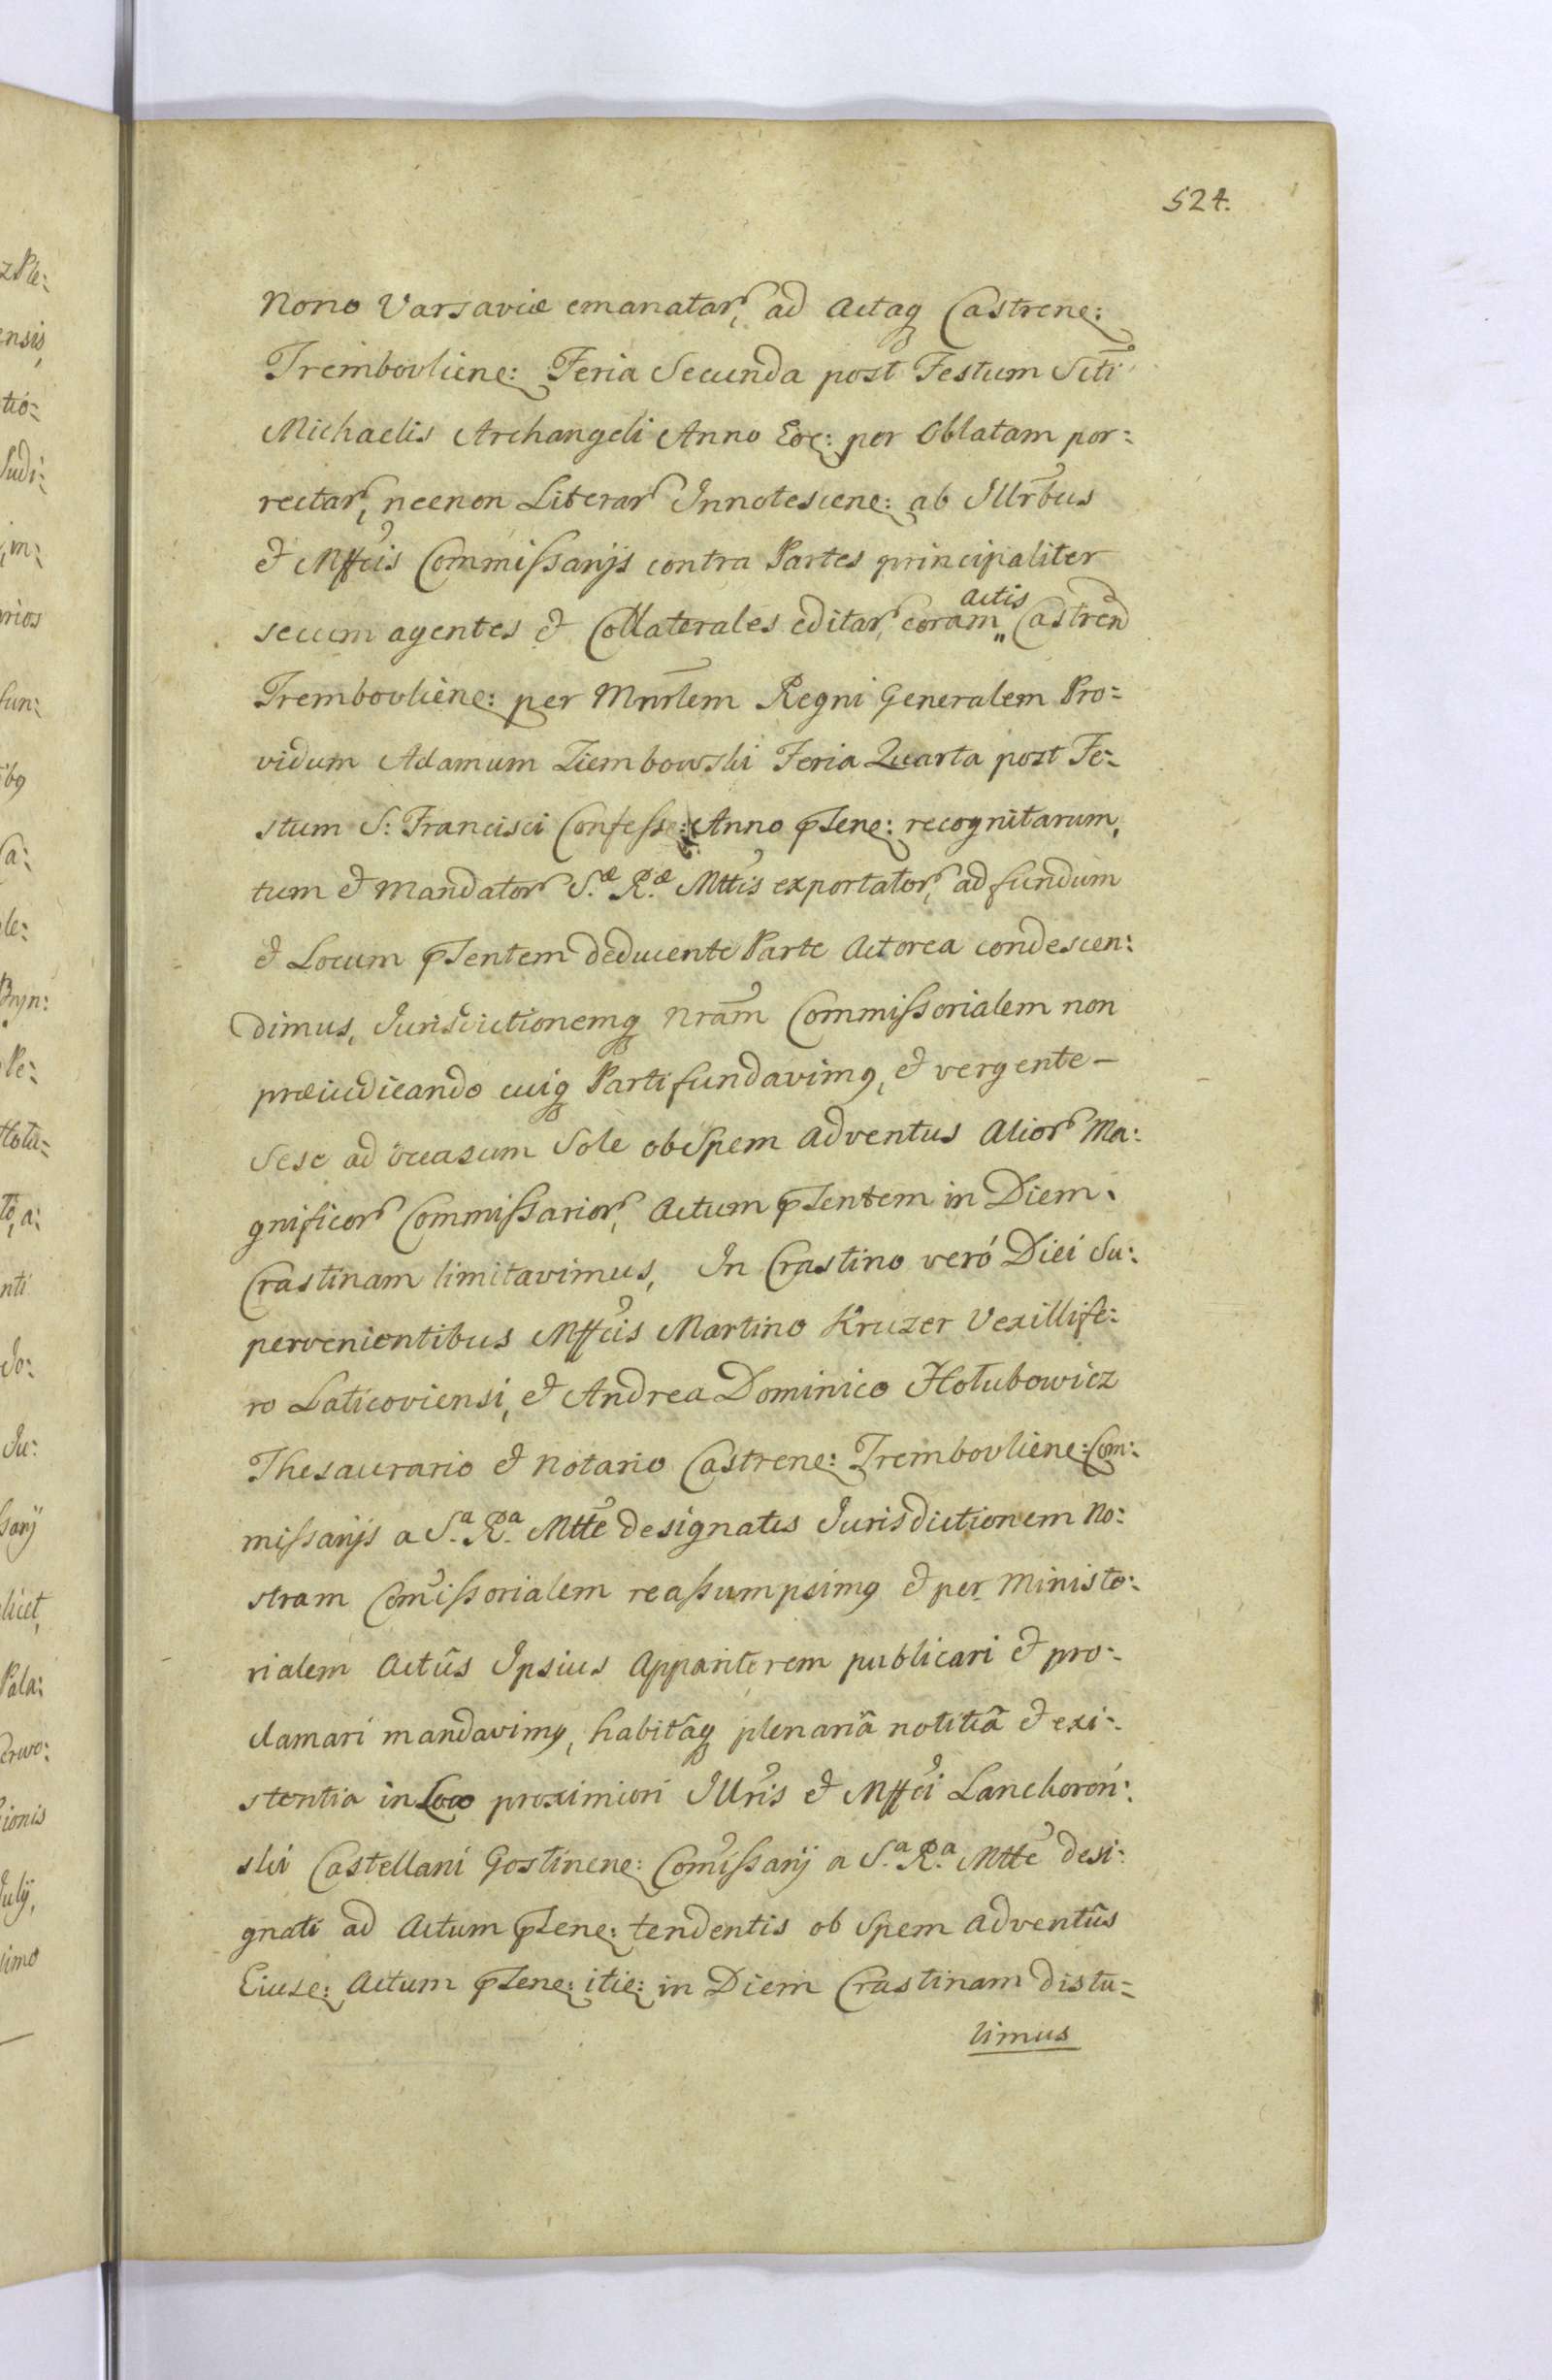 524.
Nono Varsaviæ emanatar, ad Actaq Castrene:
Trembovliene: Feria Secunda post Festum Scti
Michaelis Archangeli Anno Eoe: per Oblatam por:
rectar, necnon Literar Innotescene: ab Illrbus
et Mffcis Commissarijs contra Partes principaliter
secum agentes et Collaterales editar, coram actis Castren
Trembovliene: per Mnrlem Regni Generalem Pro:
vidum Adamum Ziembowski Feria Quarta post Fe:
stum S: Francisci Confess: Anno pntene: recognitarum,
tum et Mandator S.æ R.æ Mttis exportator, ad fundum
et Locum pntentem deducente Parte Actorea condescen:
dimus, Jurisdictionemq nram Commissorialem non
præiudicando cuiq Parti fundavimg, et vergente –
sese ad occasum Sole ob Spem Adventus Alior Ma:
gnificor Commissarior, Actum pntentem in Diem
Crastinam limitavimus, In Crastino veró Diei Su:
pervenientibus Mffcis Martino Kruzer Vexillife:
ro Laticoviensi, et Andrea Dominico Hołubowicz
Thesaurario et Notario Castrene: Trembovliene: Com:
missarijs a S.a R.a Mtte designatis Jurisdictionem No:
stram Comissorialem reassumpsimg et per Ministe:
rialem Actûs Ipsius Apparitorem publicari et pro:
clamari mandavimg, habitâq plenariâ notitiâ et exi:
stentia in Loco proximiori Illris et Mffci Lanckoroń:
ski Castellani Gostinene: Comissarij a S.a R.a Mtte desi:
gnati ad Actum pntene: tendentis ob Spem Adventûs
Eiuse: Actum pntene: itie: in Diem Crastinam distu:
limus